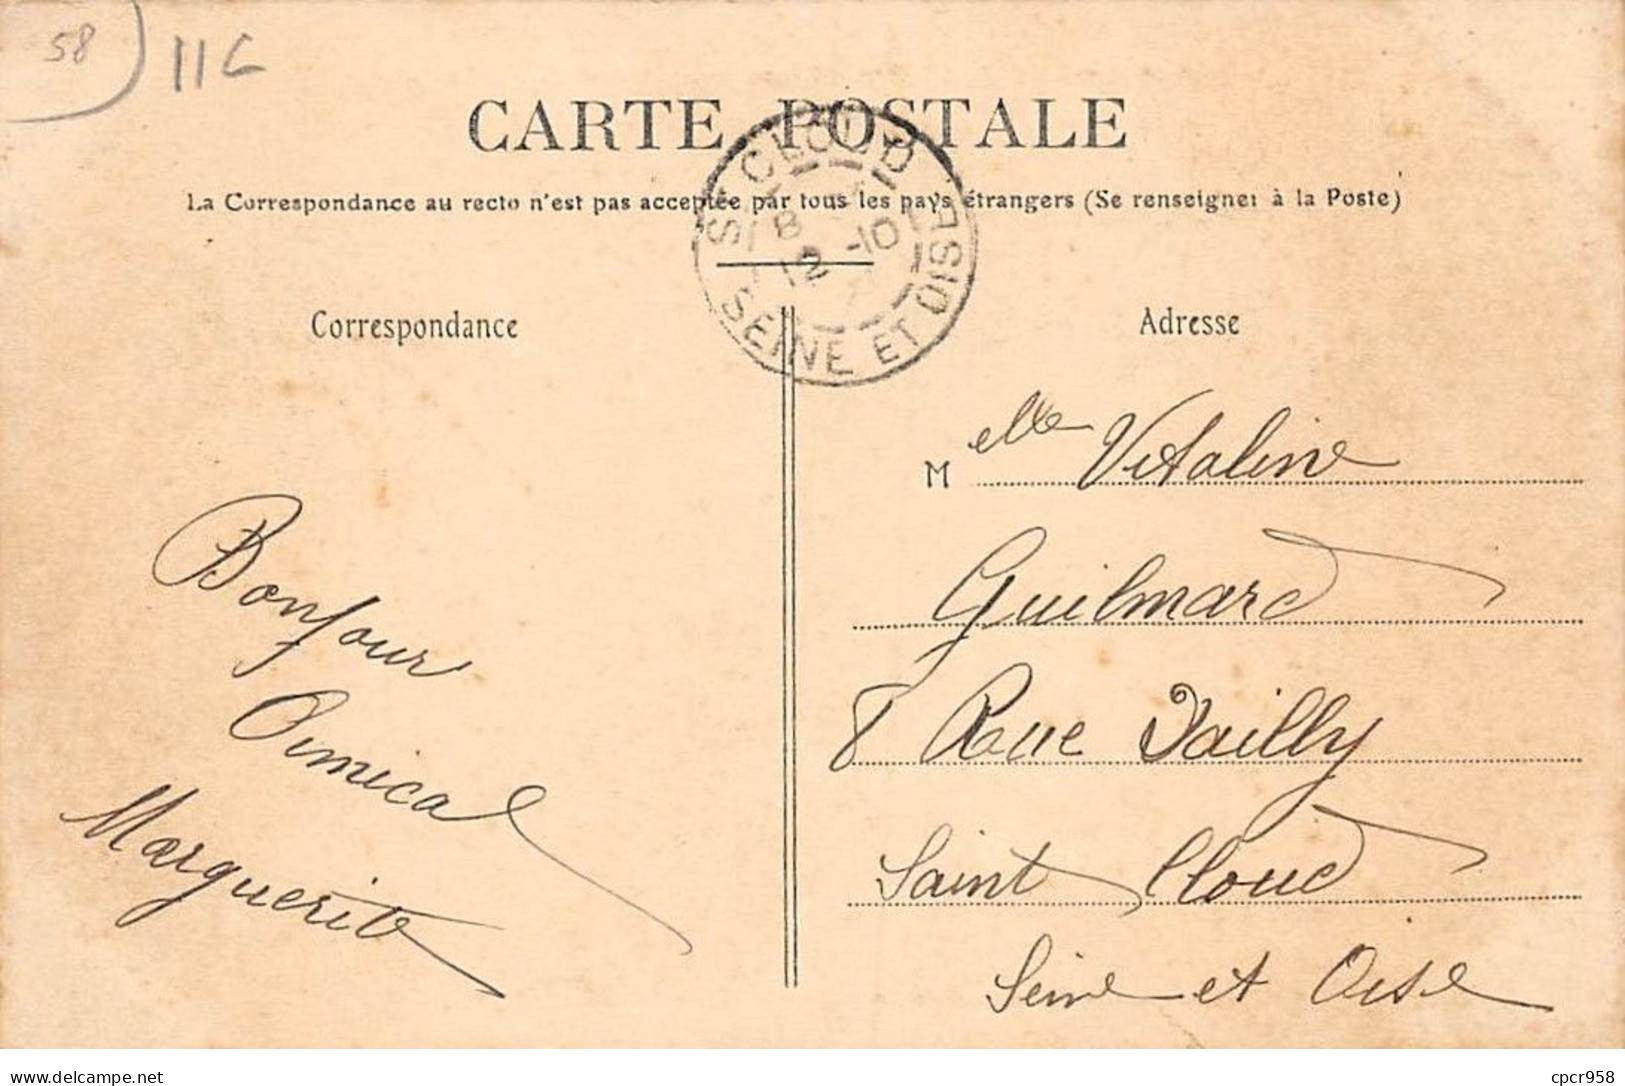 58
11G
CARTE POSTALE
La Correspondance au recto n'est pas acceptée par tous les pays étrangers (Se renseigner à la Poste)
ST CLOUD
8
12 -10
SEINE ET OISE
Correspondance
Adresse
Bonjour
Amical
Marguerite
Melle Vitaline
Guilmard
8 Rue Dailly
Saint Cloud
Seine et Oise
https://www.delcampe.net
cpcr958